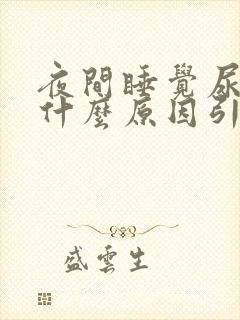 夜間睡覺尿
什麼原因引
盛雲生